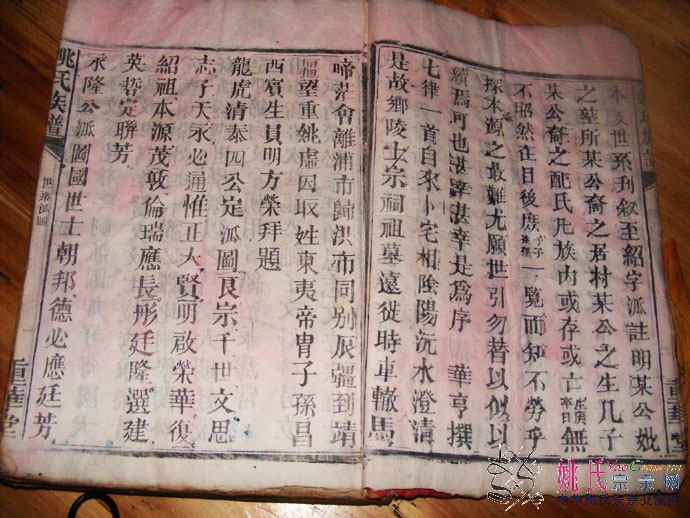 本支世系刊叙至紹字派註明某公妣
之塟所某公裔之居村某公之生几子
某公裔之配氏凡族內或存或亡生庚卒日無
不昭然在目後庶子子孫孫一覽而知不勞乎
探木源之敢難尤願世引勿替以似以
續焉可也湛幸湛幸是為序 華亨撰
七律一首自來卜宅相陰陽沅水澄清
是故鄉陵士宗祠祖墓遠從時車轍馬
啼茫會離浦市歸洪市同別辰疆到靖
疆望重姚虛因取姓東夷帝胄子孫昌
西賓生員明方榮拜題
龍虎清泰四公定派圖良宗千世文思
志子天永必通惟正大賢明啟榮華復
紹祖本源茂敦倫瑞應長彤廷隆選建
英哲定聯芳
永隆公派圖國世士朝邦德必應廷芳
姚氏族譜
世系派圖
重華堂
重華堂
姚氏宗亲网
中华姚氏宗亲交流网